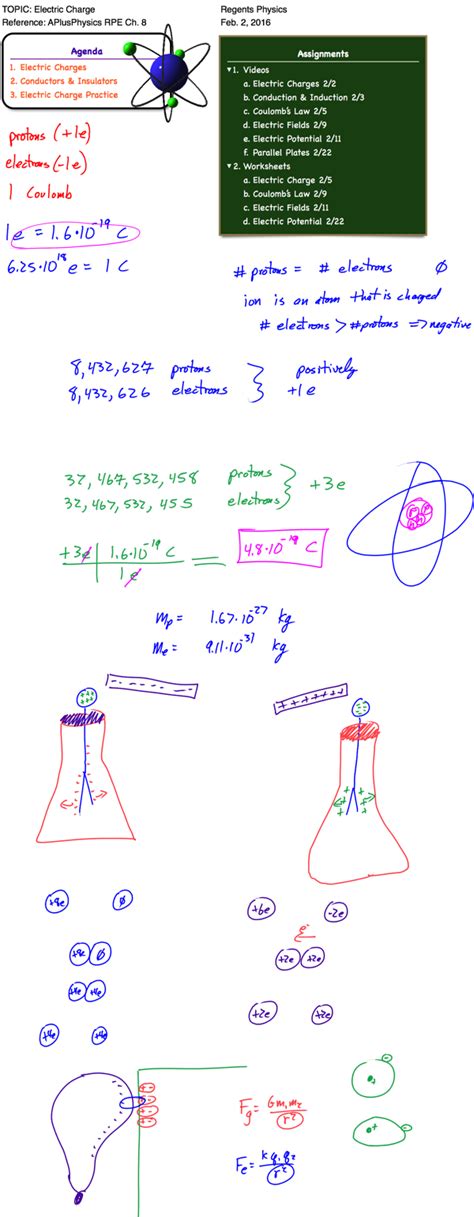 TOPIC: Electric Charge
Reference: APlusPhysics RPE Ch. 8
Regents Physics
Feb. 2, 2016
Agenda
1. Electric Charges
2. Conductors & Insulators
3. Electric Charge Practice
Assignments
▼1. Videos
a. Electric Charges 2/2
b. Conduction & Induction 2/3
c. Coulomb's Law 2/5
d. Electric Fields 2/9
e. Electric Potential 2/11
f. Parallel Plates 2/22
▼2. Worksheets
a. Electric Charge 2/5
b. Coulomb's Law 2/9
c. Electric Fields 2/11
d. Electric Potential 2/22
protons (+1e)
electrons (-1e)
1 Coulomb
1e = 1.6·10⁻¹⁹ C
6.25·10¹⁸ e = 1 C
# protons = # electrons Ø
ion is an atom that is charged
# electrons > # protons => negative
8,432,627 protons
8,432,626 electrons
positively
+1e
32,467,532,458 protons
32,467,532,455 electrons
+3e
+3e | 1.6·10⁻¹⁹ C
1e
= 4.8·10⁻¹⁹ C
mp = 1.67·10⁻²⁷ kg
me = 9.11·10⁻³¹ kg
- - - - - -
+ + + + + +
+8e Ø
+6e -2e
e⁻
+8e Ø
+2e +2e
+4e +4e
+2e +2e
+4e +4e
Fg = Gm₁m₂
r²
Fe = kq₁q₂
r²